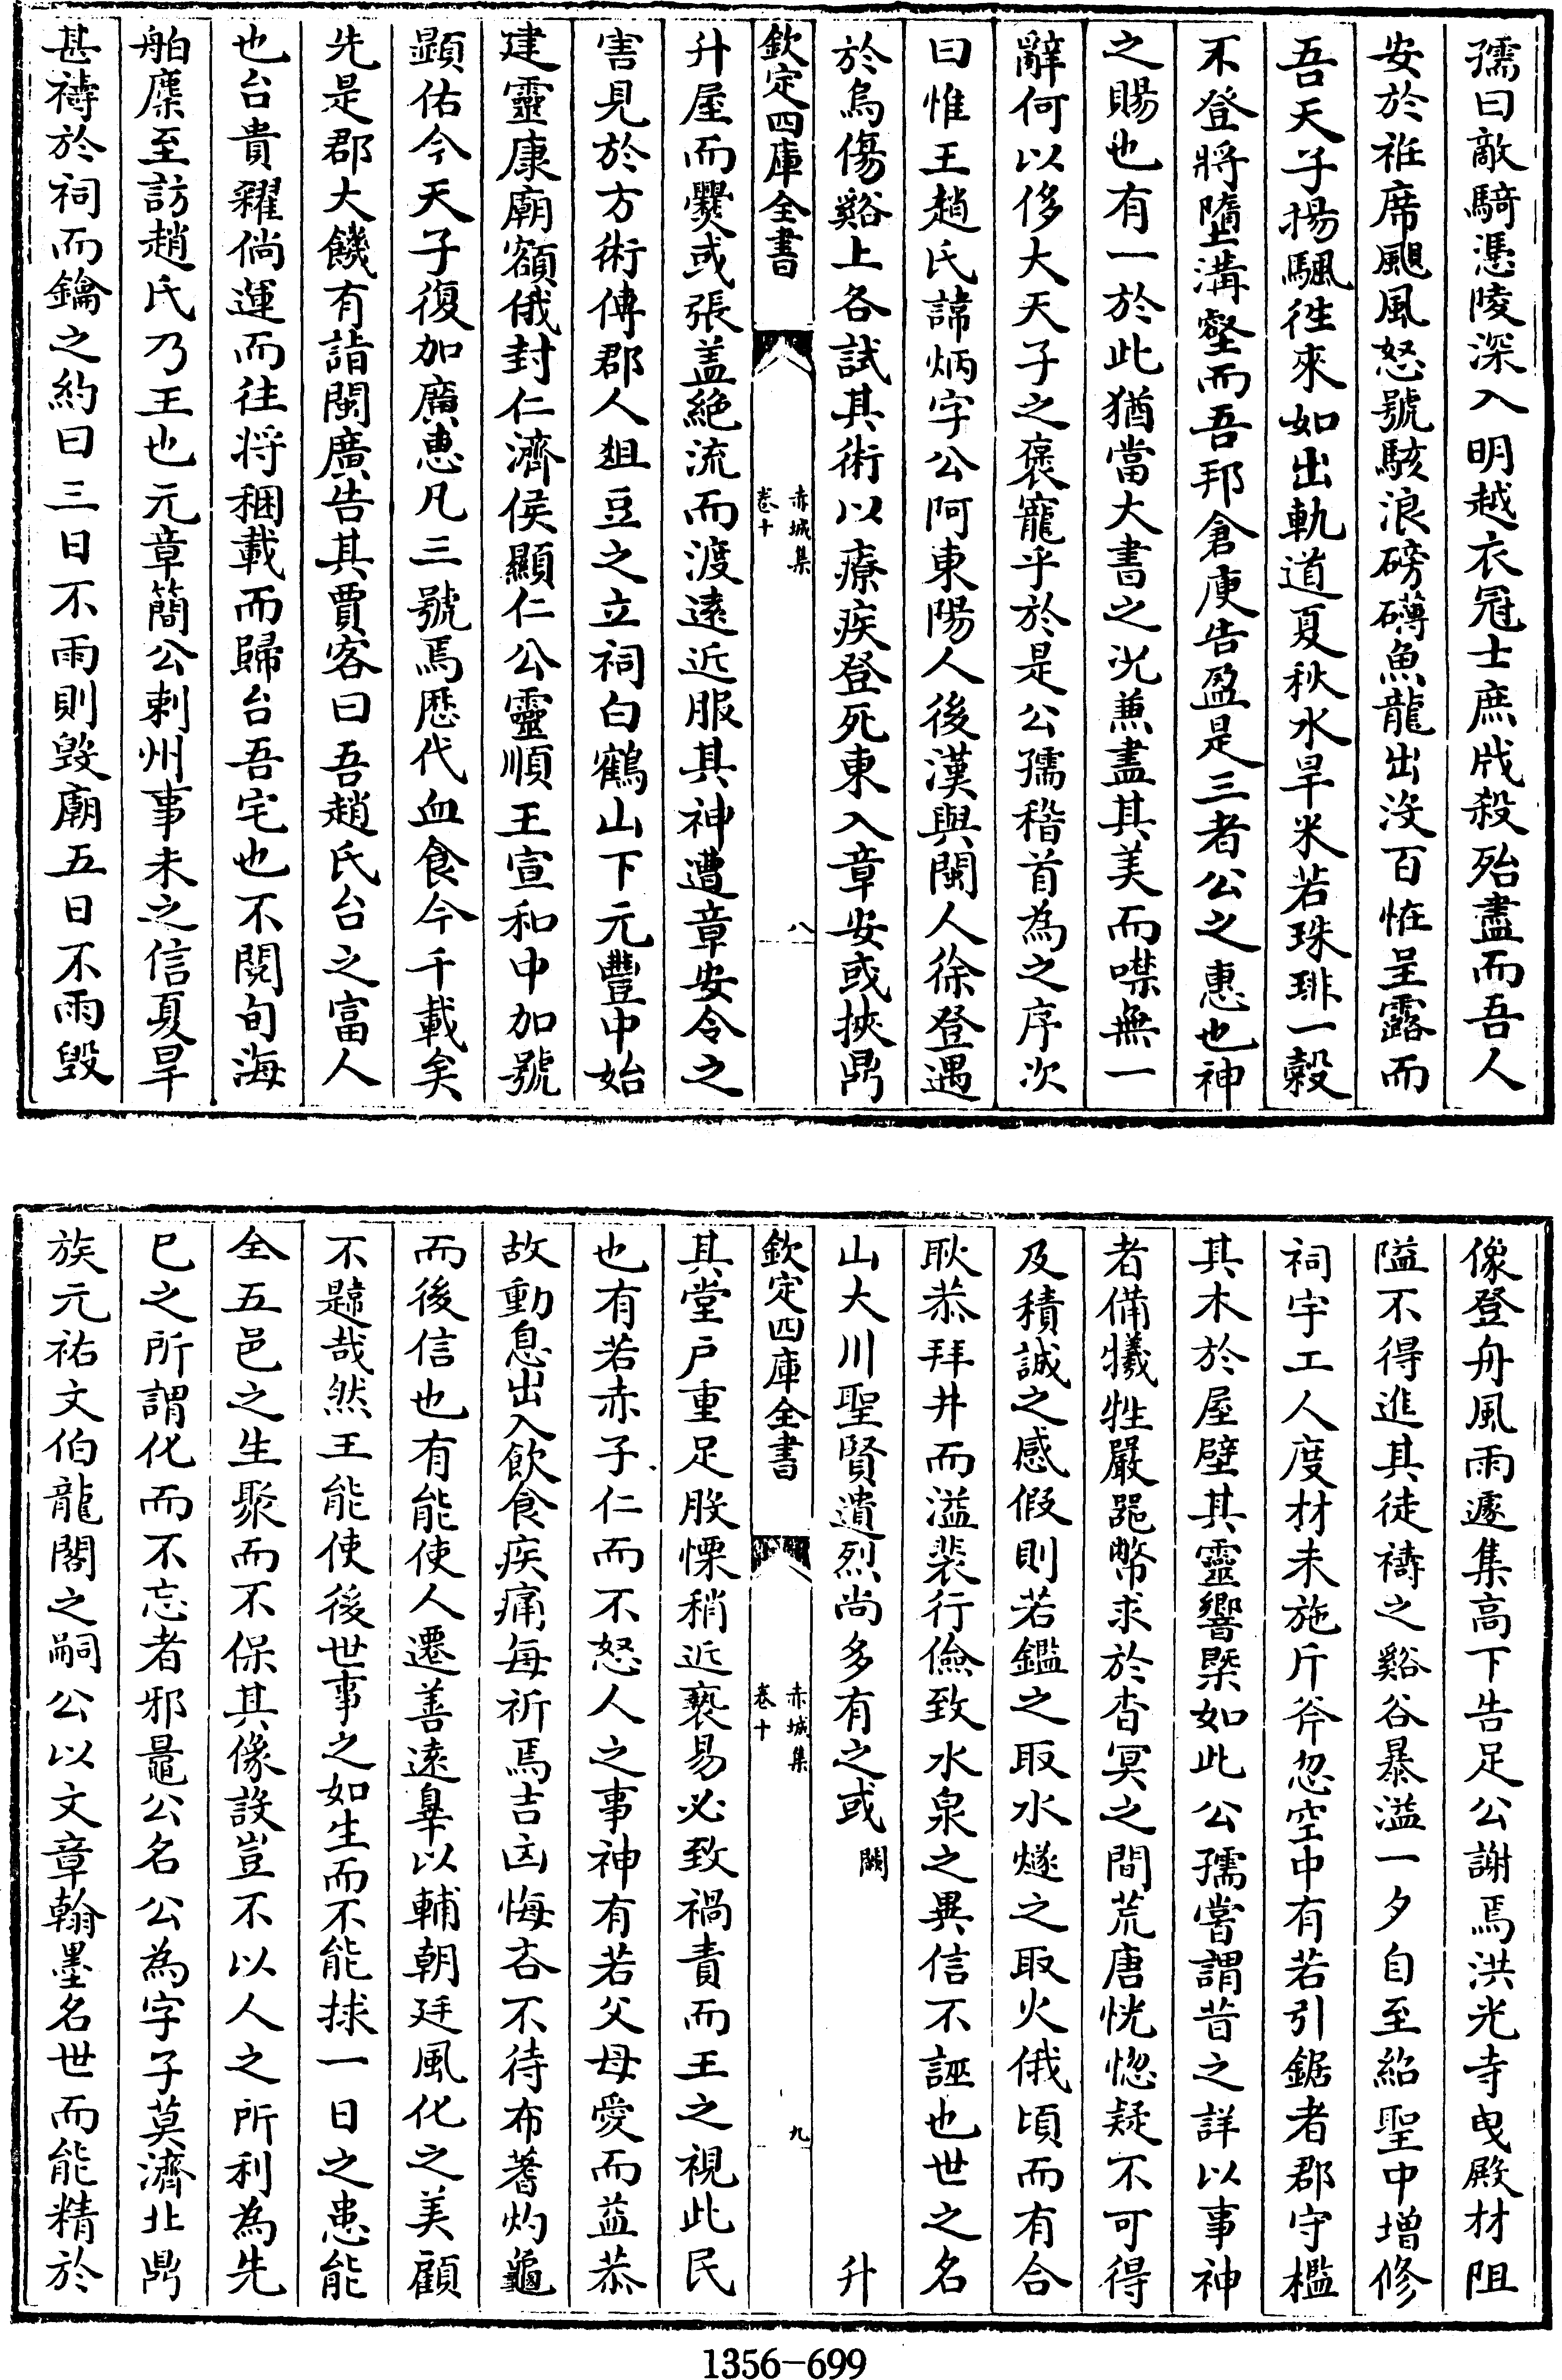 孺曰敵騎憑陵深入明越衣冠士庶戕殺殆盡而吾人
安於袵席颶風怒號駭浪磅礴魚龍出沒百怪呈露而
吾天子揚颿徃來如出軌道夏秋水旱米若珠琲一榖
不登將墮溝壑而吾邦倉庾告盈是三者公之惠也神
之賜也有一於此猶當大書之況兼盡其美而噤無一
辭何以侈大天子之褒寵乎於是公孺稽首為之序次
曰惟王趙氏諱炳字公阿東陽人後漢與閩人徐登遇
於烏傷谿上各試其術以療疾登死東入章安或挾鼎
欽定四庫全書
赤城集
卷十
八
升屋而爨或張盖絶流而渡逺近服其神遭章安令之
害見於方術傳郡人爼豆之立祠白鶴山下元豐中始
建靈康廟額俄封仁濟侯顯仁公靈順王宣和中加號
顯佑今天子復加廣惠凡三號焉歴代血食今千載矣
先是郡大饑有詣閩廣告其賈客曰吾趙氏台之富人
也台貴糴倘運而往将稇載而歸台吾宅也不閱旬海
舶麇至訪趙氏乃王也元章簡公剌州事未之信夏旱
甚禱於祠而鑰之約曰三日不雨則毀廟五日不雨毀
像登舟風雨遽集髙下告足公謝焉洪光寺曵殿材阻
隘不得進其徒禱之谿谷暴溢一夕自至紹聖中増修
祠宇工人度材未施斤斧忽空中有若引鋸者郡守檻
其木於屋壁其靈響槩如此公孺嘗謂昔之詳以事神
者備犧牲嚴噐幣求於杳冥之間荒唐恍惚疑不可得
及積誠之感假則若鑑之取水燧之取火俄頃而有合
耿恭拜井而溢裴行儉致水泉之異信不誣也世之名
山大川聖賢遺烈尚多有之或闕 升
欽定四庫全書
赤城集
卷十
九
其堂戸重足股慄稍近䙝易必致禍責而王之視此民
也有若赤子仁而不怒人之事神有若父母愛而益恭
故動息出入飲食疾痛每祈焉吉凶悔吝不待布蓍灼龜
而後信也有能使人遷善逺辠以輔朝廷風化之美顧
不韙哉然王能使後世事之如生而不能捄一日之患能
全五邑之生聚而不保其像設豈不以人之所利為先
已之所謂化而不忘者邪鼂公名公為字子莫濟北鼎
族元祐文伯龍閣之嗣公以文章翰墨名世而能精於
1356-699